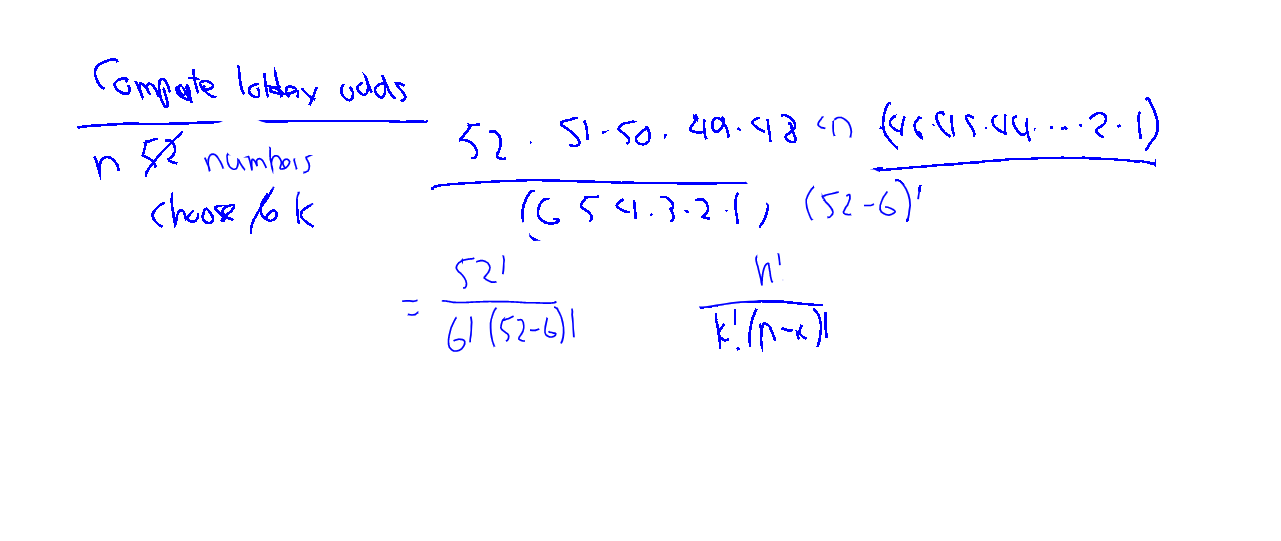 Compute lottery odds
n 52 numbers
choose 6 k
52 · 51 · 50 · 49 · 48 · 47 (46·45·44····2·1)
(6 5 4·3·2·1) (52-6)!
= 52! / 6!(52-6)!
n! / k!(n-k)!